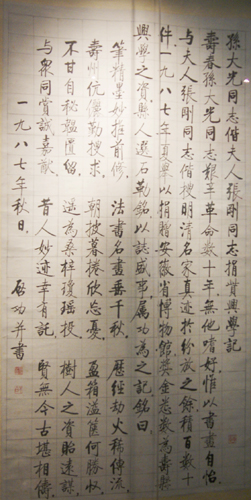 孫大光同志偕夫人張剛同志捐資興學記
壽春孫大光同志革命數十年無他嗜好惟以書畫自怡
與夫人張剛同志偕搜明清名家真迹於紛放之餘積百數十
件一九八七年夏舉以捐贈安徽省博物館獎金卷數為壽縣
興學之資縣人選石勒銘以誌盛事屬功為之記銘曰
筆精墨妙前修 法書名畫垂千秋 歷經劫火稀傳流
壽州伉儷勤搜求 朝披暮捲欣忘憂 盈箱溢篋何勝收
不甘自秘韞匵留 還為桑梓瓊瑤投 樹人之資貽遠謀
與眾同賞誠嘉猷 昔人妙迹幸有託 賢無今古堪相儔
一九八七年秋日 啟功并書